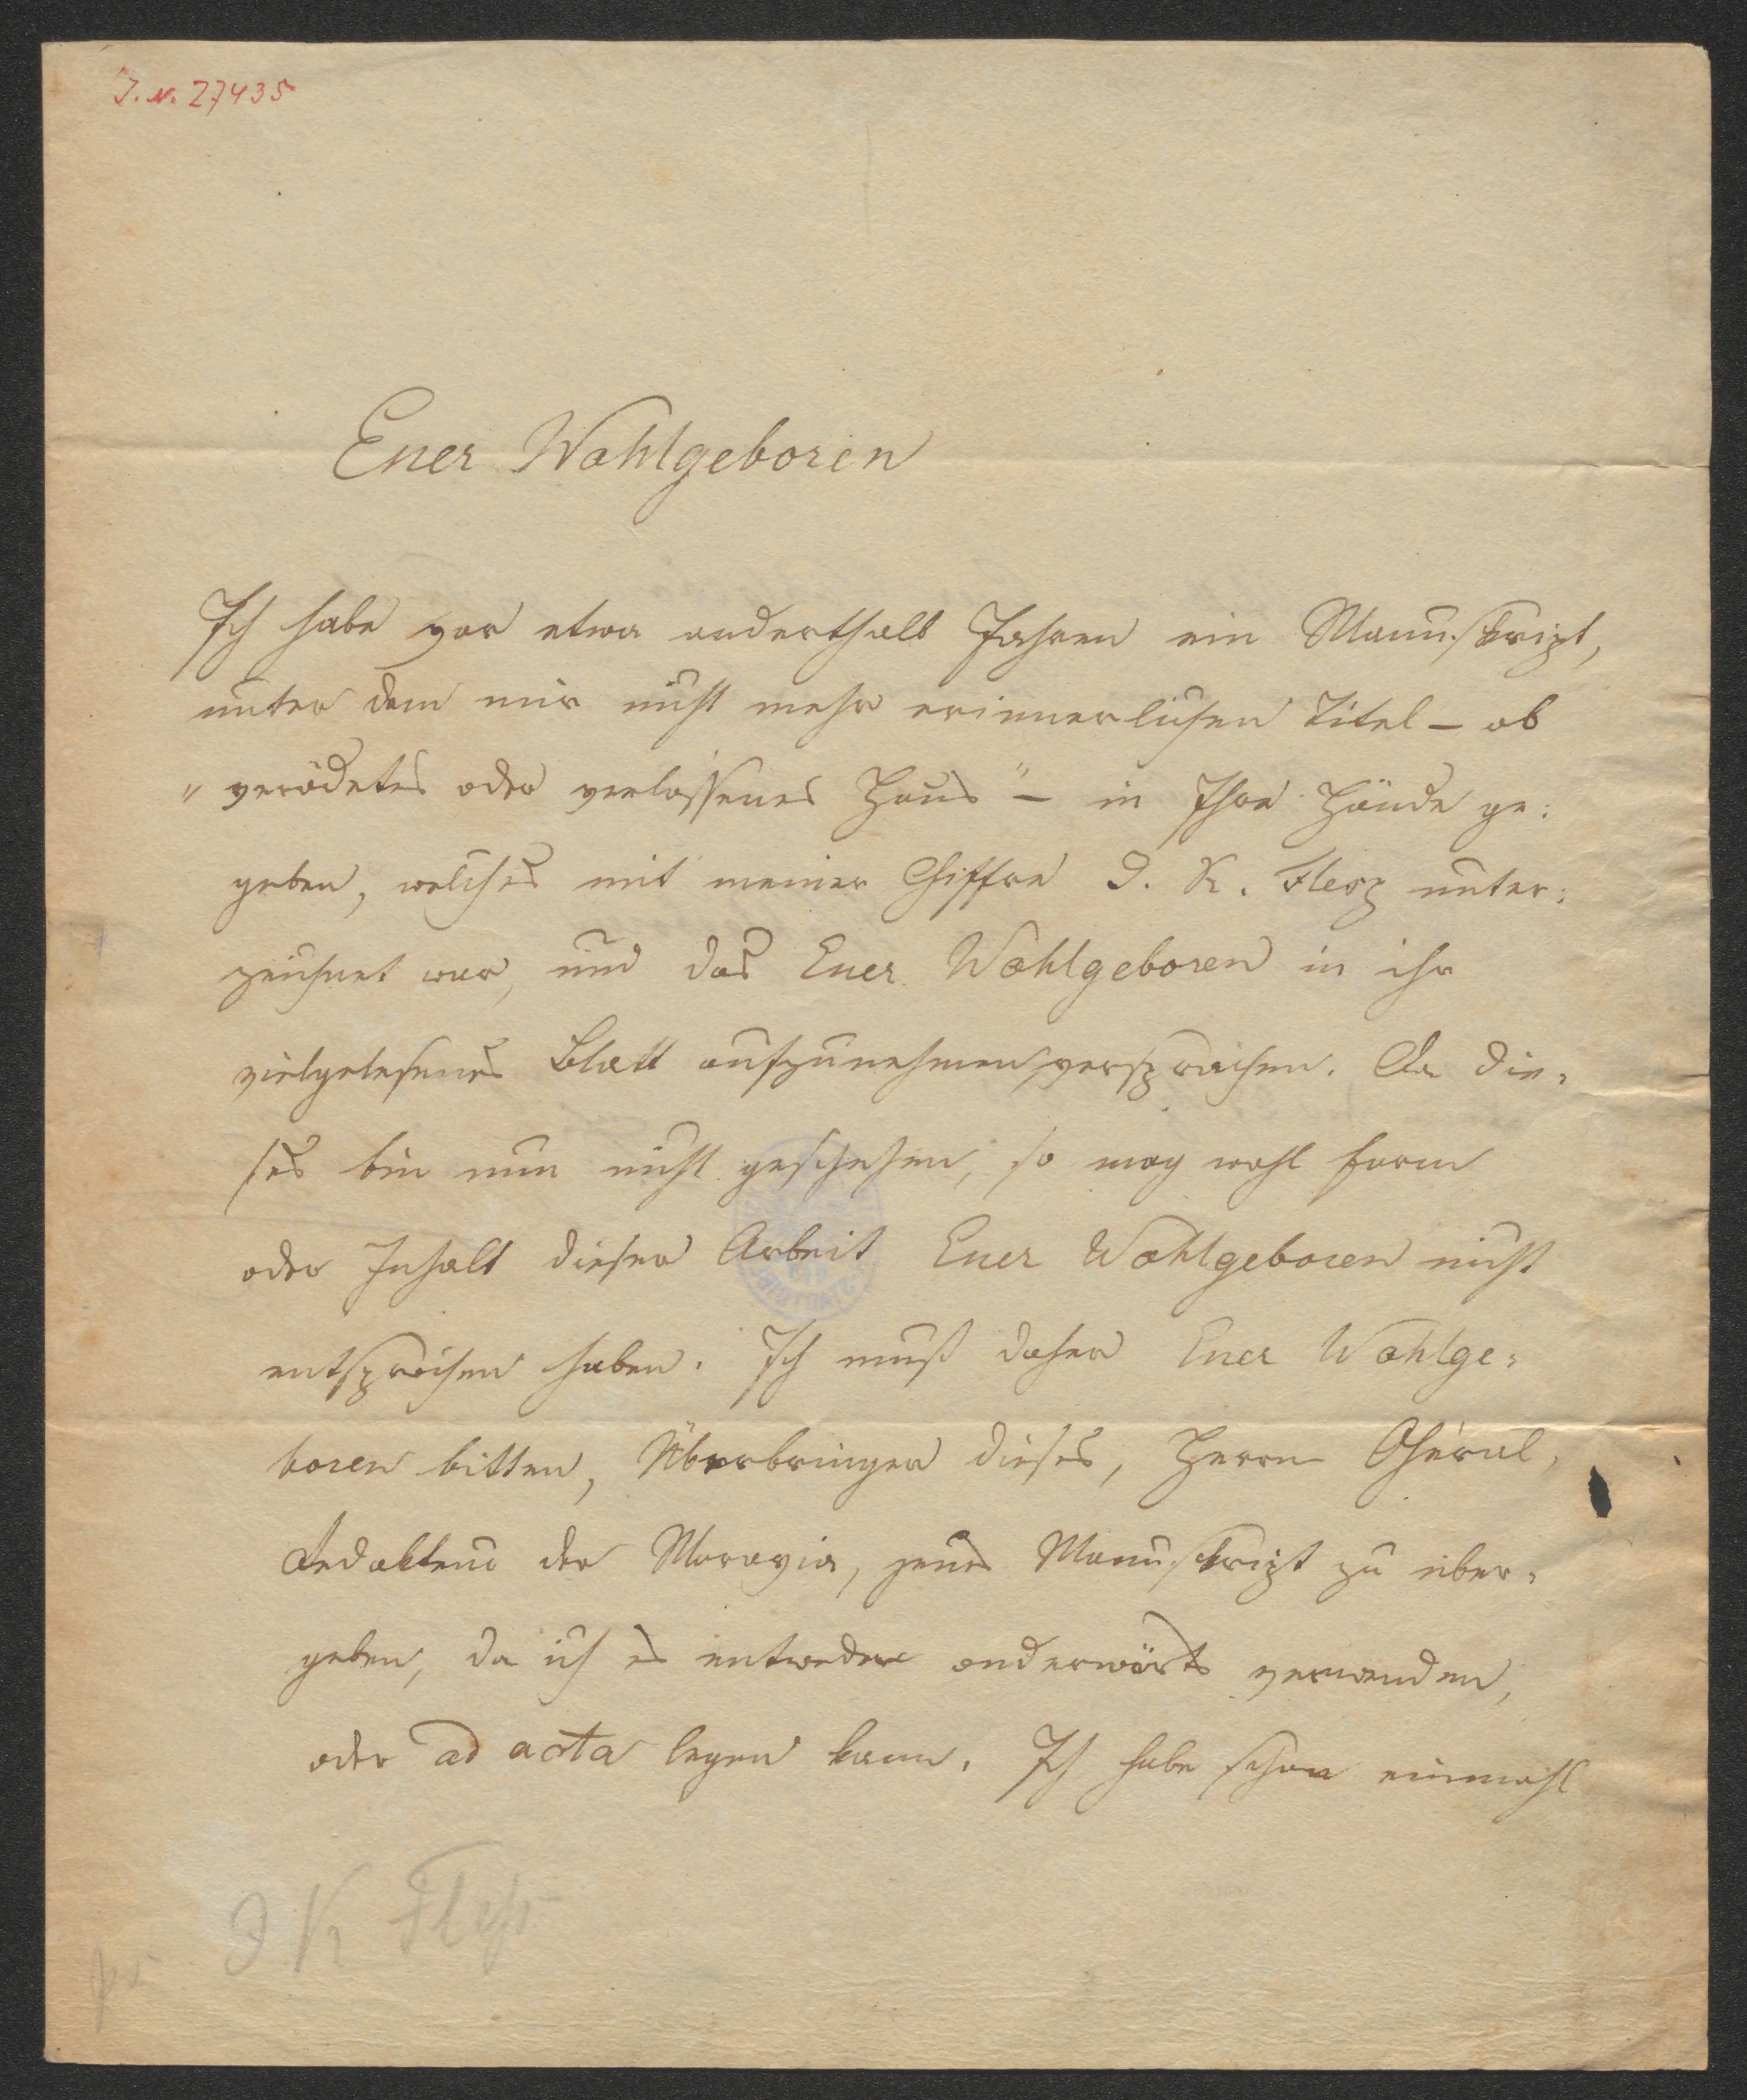 I. N. 27435
Euer Wohlgeboren
Ich habe vor etwa anderthalb Jahren ein Manuskript,
unter dem mir nicht mehr erinnerlichen Titel – ob
„verödetes oder verlassenes Haus“ – in Ihre Hände ge:
geben, welches mit meiner Chiffre J. K. unter:
zeichnet war, und das Euer Wohlgeboren in ihr
vielgelesenes Blatt aufzunehmen versprachen. Da die:
ses bin nun nicht geschehen, so mag wohl Form
oder Inhalt dieser Arbeit Euer Wohlgeboren nicht
entsprochen haben. Ich muß daher Euer Wohlge:
boren bitten, Überbringer dieses, Herrn Ohéral,
Redakteur der Moravia, jenes Manuskript zu über:
geben, da ich es entweder anderwärts verwenden,
oder ad acta legen kann. Ich habe schon einmahl
J K